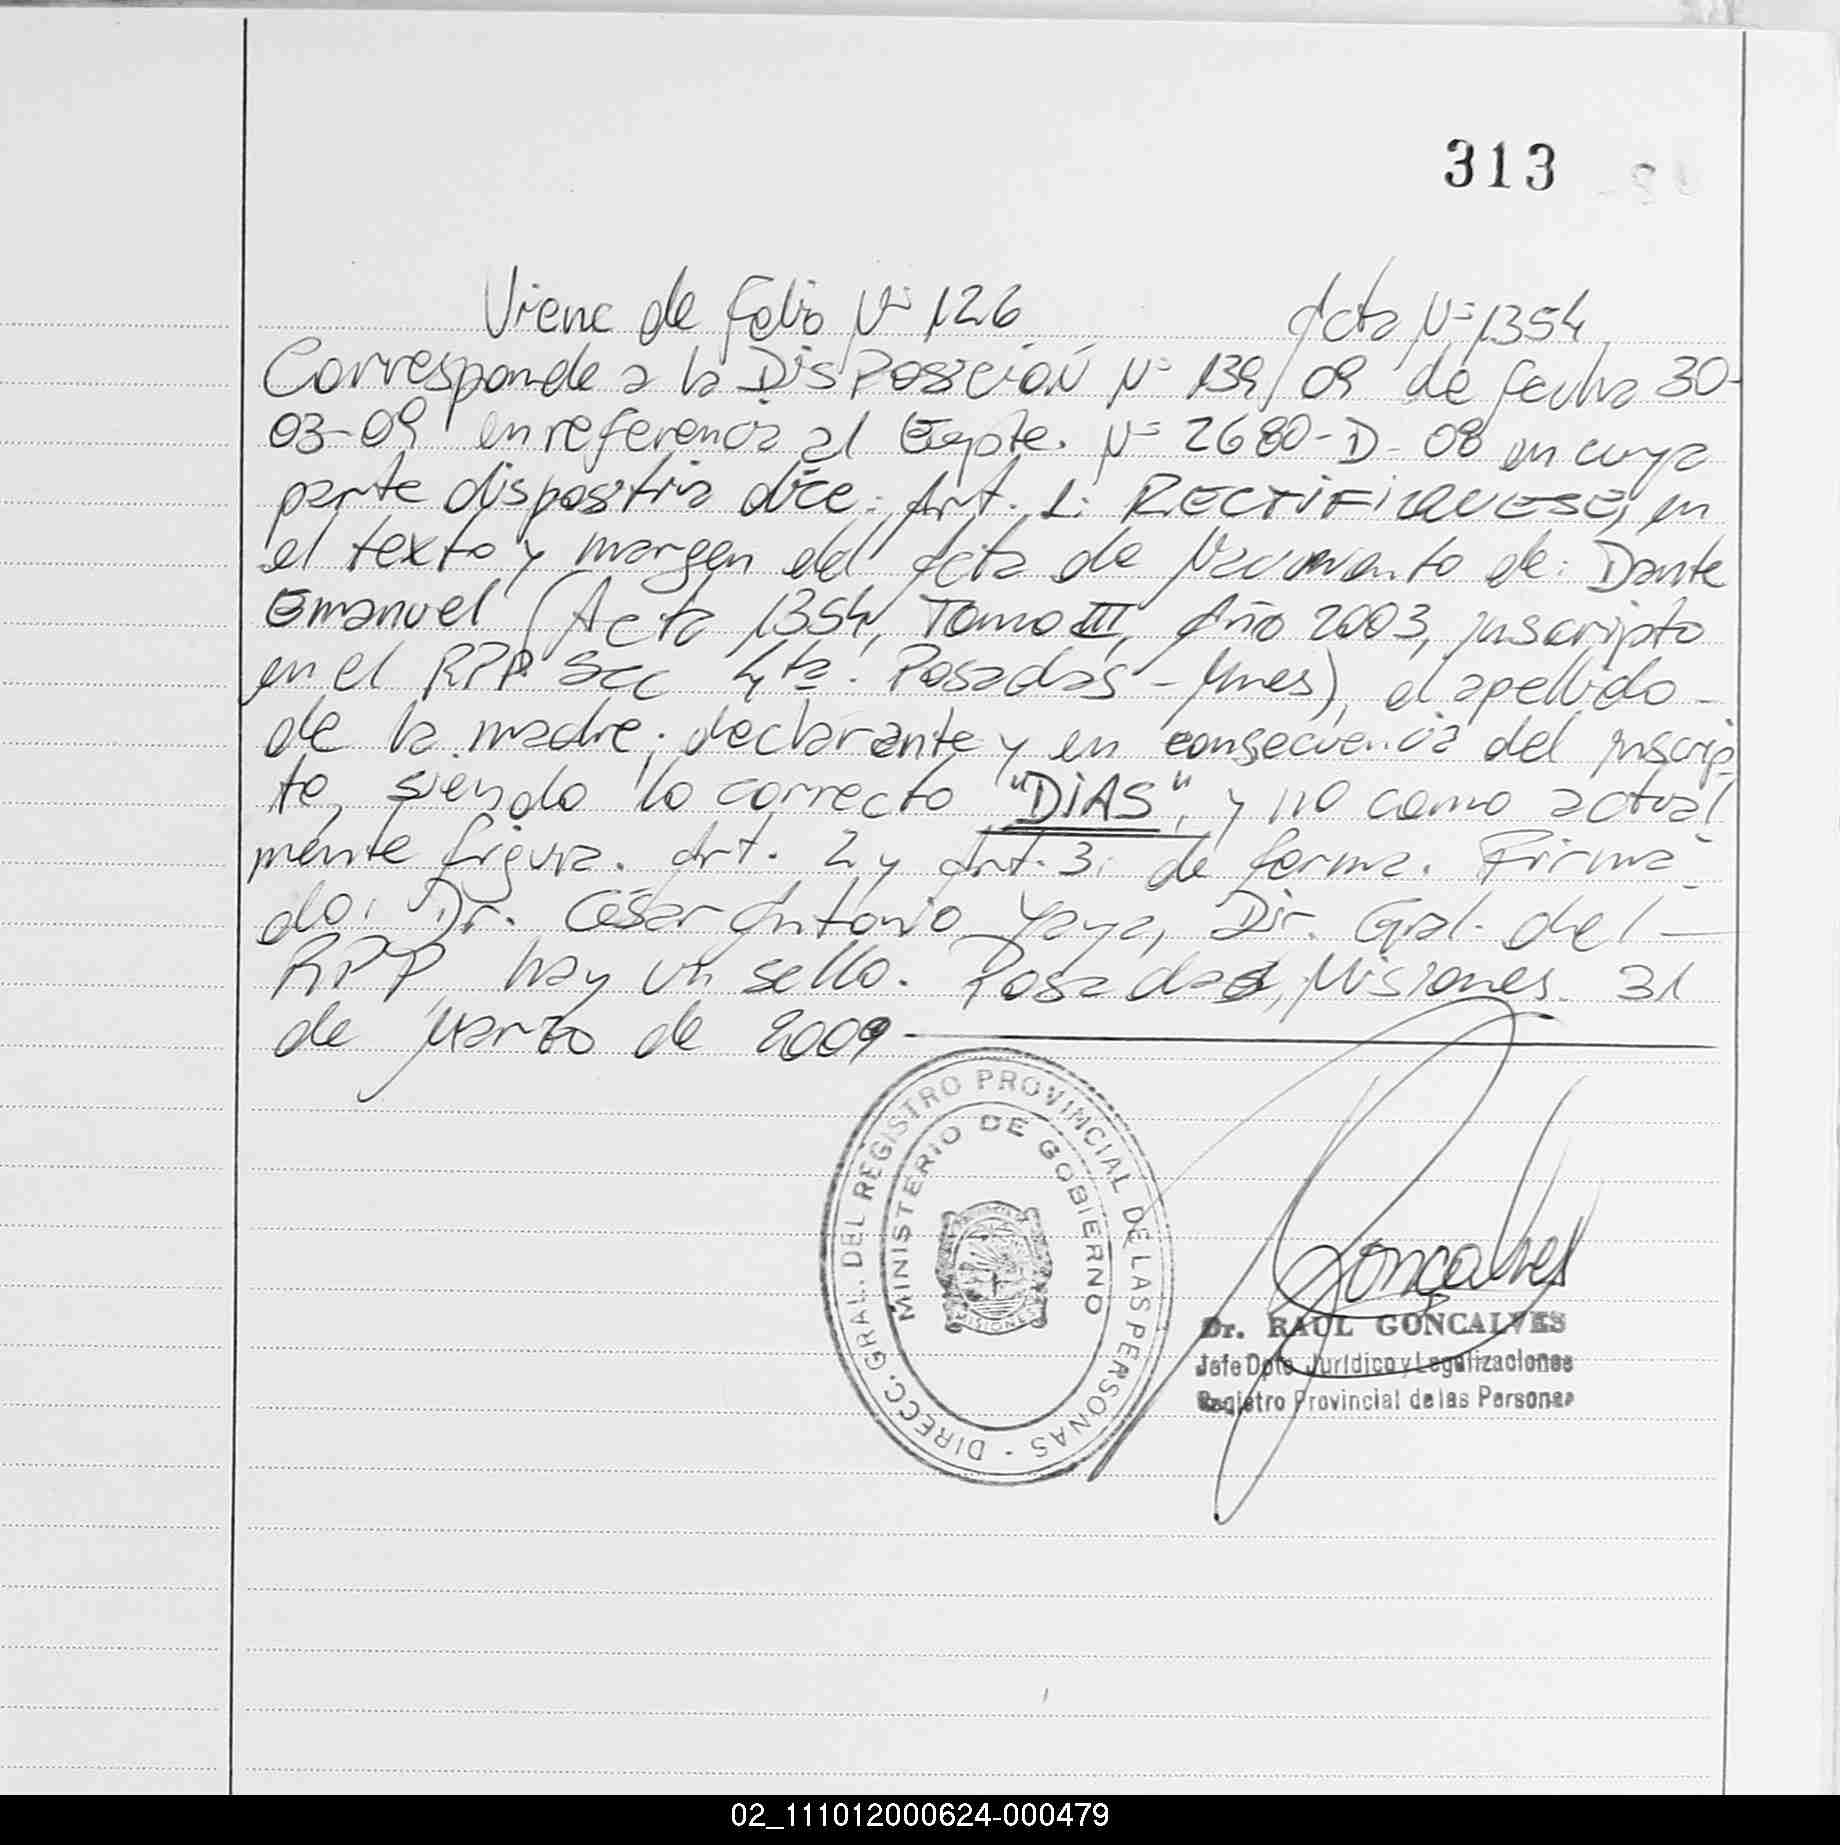 313
Viene de Folio Nº 126 Acta Nº 1354
Corresponde a la DisPosición Nº 139/09 de fecha 30-
03-09 en referencia al Expte. Nº 2680-D-08 en cuya
parte dispositiva dice: Art. 1: RECTIFIQUESE, en
el texto y margen del Acta de Nacimiento de: Dante
Emanuel (Acta 1354, Tomo III, Año 2003, inscripto
en el RPP Sec 4ta. Posadas - Mnes), el apellido -
de la madre, declarante y en consecuencia del inscrip
to, siendo lo correcto "DiAS", y no como actual
mente figura. Art. 2 y Art. 3: de forma. Firma-
do: Dr. César Antonio Yaya, Dir. Gral. del -
RPP hay un sello. Posadas, Misiones. 31
de Marzo de 2009
DIRECC. GRAL. DEL REGISTRO PROVINCIAL DE LAS PERSONAS -
MINISTERIO DE GOBIERNO
MISIONES
Gonçalves
Dr. RAUL GONÇALVES
Jefe Dpto Jurídico y Legalizaciones
Registro Provincial de las Personas
02_111012000624-000479